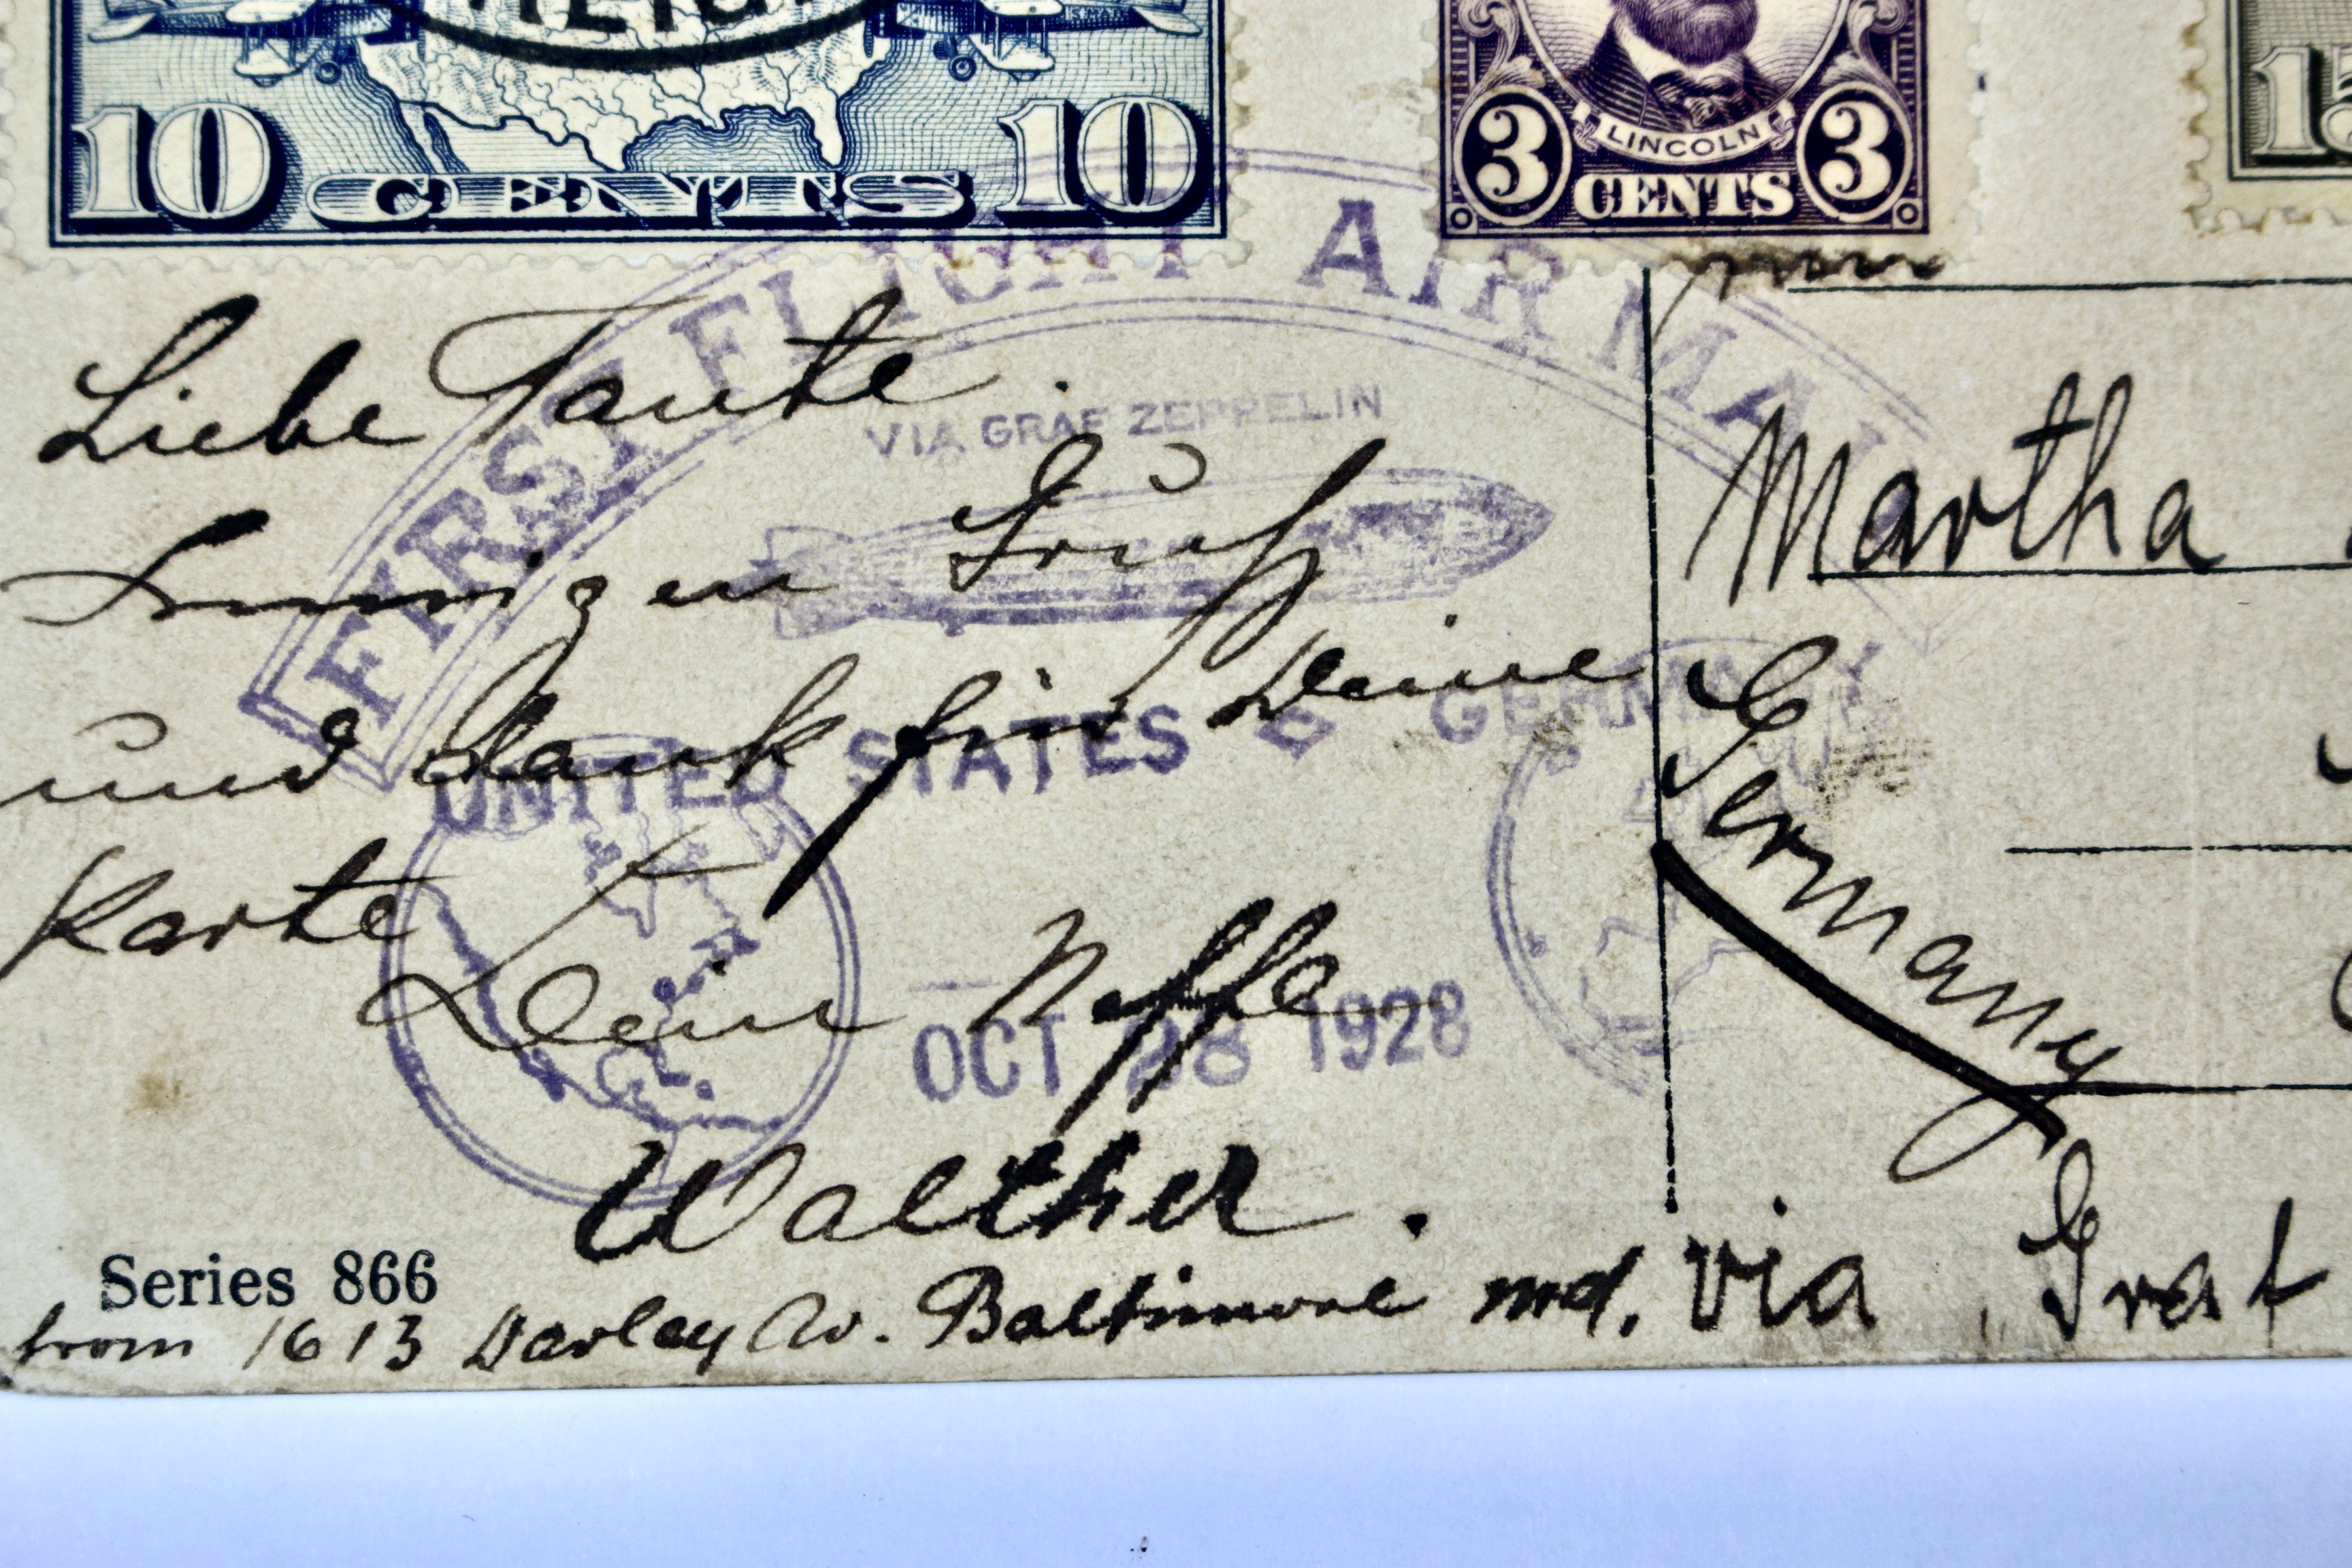 10 CENTS 10
3 LINCOLN 3
CENTS
15
FIRST FLIGHT AIR MAIL
VIA GRAF ZEPPELIN
UNITED STATES GERMANY
OCT 28 1928
Liebe Tante.
Innigen Gruß
und Dank für Deine
Karte
Dein Neffe
Walther.
Series 866
from 1613 Darley Av. Baltimore md.
Martha
Germany
via Graf